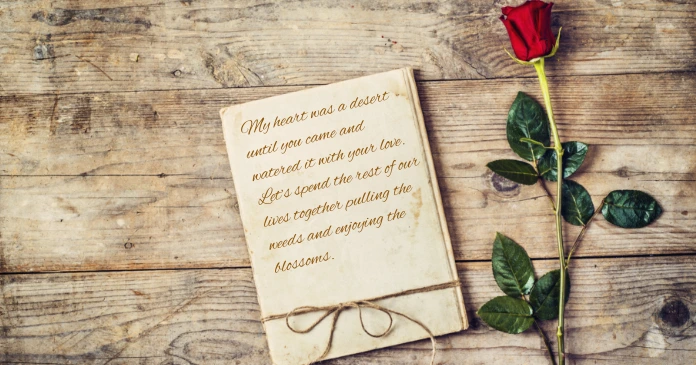 My heart was a desert
until you came and
watered it with your love.
Let's spend the rest of our
lives together pulling the
weeds and enjoying the
blossoms.